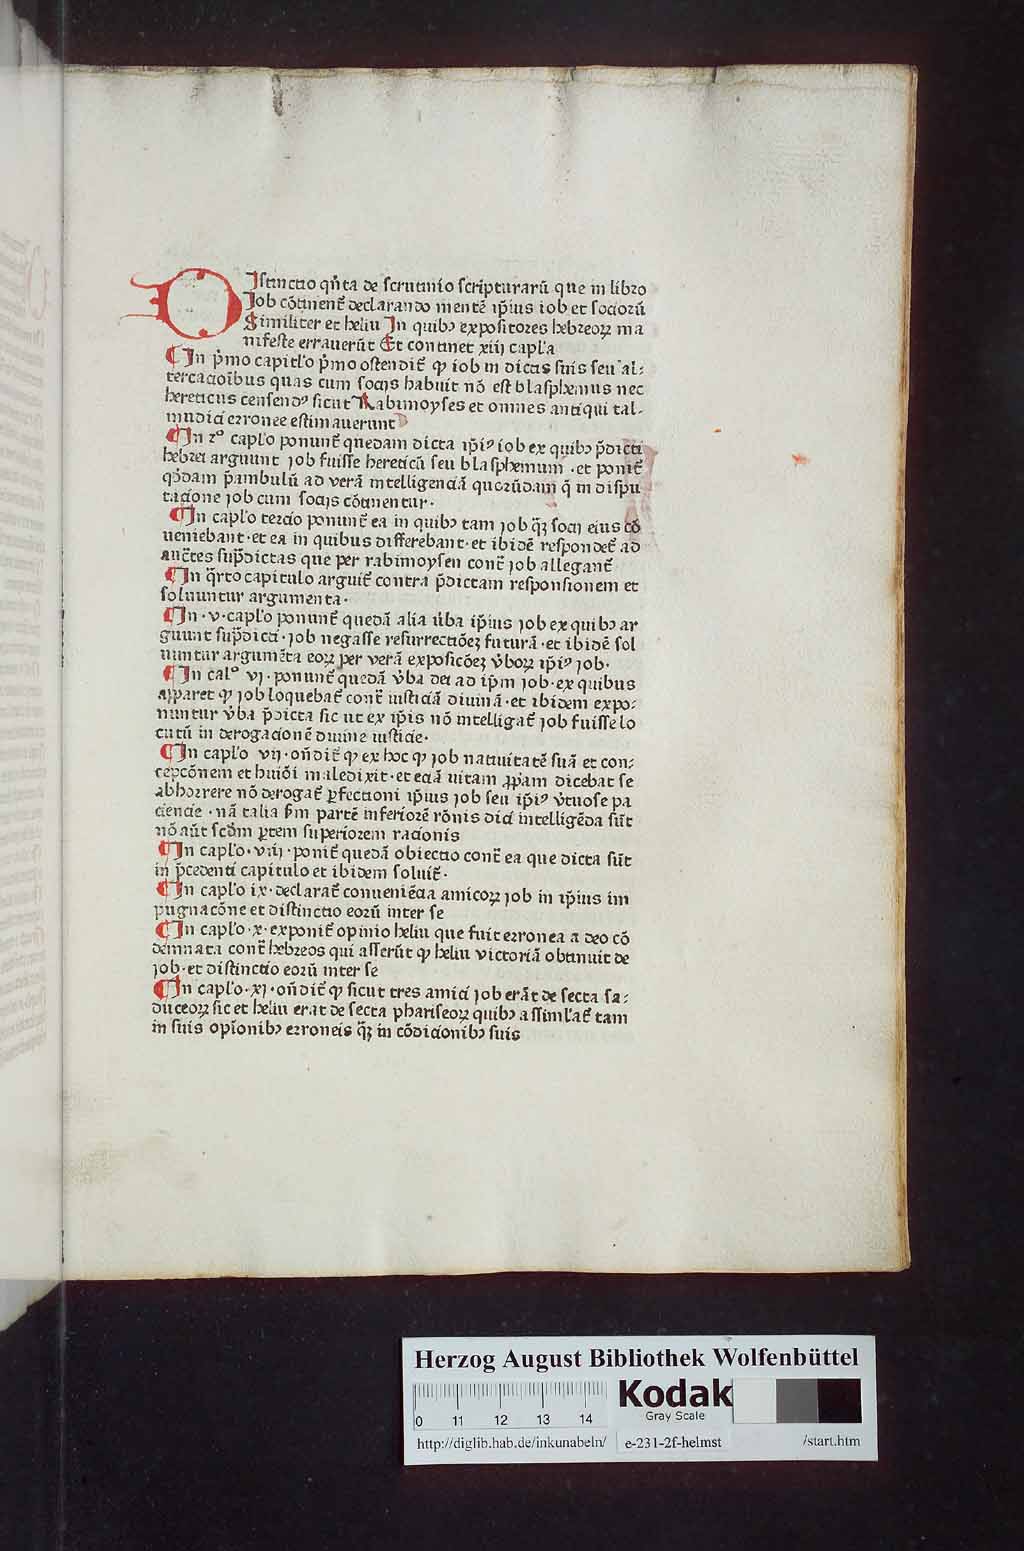 DIstinctio qͥnta de scrutinio scripturarū que in libro
Iob cōtinent᷑ declarando mentē ip̄ius iob et socioꝝ
Similiter et heliu In quibꝫ expositores hebreoꝝ ma
nifeste errauerūt Et continet xiij capl'a
¶ In pͥmo capitl'o pͥmo ostendit᷑ ꝙ iob in dictis suis seu al⸗
tercacioībus quas cum socijs habuit nō est blasphemus nec
hereticus censendꝰ sicut Rabimoyses et omnes antiqui tal⸗
mudici erronee estimauerunt
¶ In 2° capl'o ponunt᷑ quedam dicta ip̄iꝰ iob ex quibꝫ p̄dicti
hebrei arguunt iob fuisse hereticū seu blasphemum · et ponit᷑
qͦddam p̄ambulū ad verā intelligenciā quorūdam q̄ in dispu
tacione iob cum socijs cōtinentur ·
¶ In capl'o tercio ponunt᷑ ea in quibꝫ tam iob qꝫ̄ socij eius cō
ueniebant · et ea in quibus differebant · et ibidē respondet᷑ ad
auct᷑tes sup̄dictas que per rabimoysen cont᷑ iob allegant᷑
¶ In qͣrto capitulo arguit᷑ contra p̄dictam responsionem et
soluuntur argumenta ·
¶ In · v · capl'o ponunt᷑ quedā alia v̄ba ip̄ius iob ex quibꝫ ar
guunt sup̄dicti · iob negasse resurrectiōeꝫ futurā · et ibidē sol
uuntur argumēta eoꝝ per verā exposicōeꝫ v̄boꝝ ip̄iꝰ iob ·
¶ In cal° vj · ponunt᷑ quedā v̄ba dei ad ip̄m iob · ex quibus
apparet ꝙ iob loquebat᷑ cont᷑ iusticiā diuinā · et ibidem expo⸗
nuntur v̄ba p̄dicta sic ut ex ip̄is nō intelligat᷑ iob fuisse lo
cutū in derogacionē diuine iusticie ·
¶ In capl'o vij · oñdit᷑ ꝙ ex hoc ꝙ iob natiuitatē suā et con⸗
cepcōnem et huiōi maledixit · et eciā uitam ꝓp̄am dicebat se
abhorrere nō derogat᷑ ꝑfectioni ip̄ius iob seu ip̄iꝰ v̄tuose pa
ciencie · nā talia ẜm partē inferiorē rōnis dici intelligēda sūt
nō aūt scd̄m ꝑtem superiorem racionis
¶ In capl'o · viij · ponit᷑ quedā obiectio cont᷑ ea que dicta sūt
in p̄cedenti capitulo et ibidem soluit᷑ ·
¶ In capl'o ix · declarat᷑ conueniēcia amicoꝝ iob in ip̄ius im
pugnacōne et distinctio eorū inter se
¶ In capl'o · x · exponit᷑ opinio heliu que fuit erronea a deo cō
demnata cont᷑ hebreos qui asserūt ꝙ heliu victoriā obtinuit de
iob · et distinctio eorū inter se
¶ In capl'o · xj · oñdit᷑ ꝙ sicut tres amici iob erāt de secta sa⸗
duceoꝝ sic et heliu erat de secta phariseoꝝ quibꝫ assiml'at᷑ tam
in suis opīonibꝫ erroneis qꝫ̄ in cōdicionibꝫ suis
Herzog August Bibliothek Wolfenbüttel
0 11 12 13 14
Kodak
Gray Scale
http://diglib.hab.de/inkunabeln/ e-231-2f-helmst /start.htm